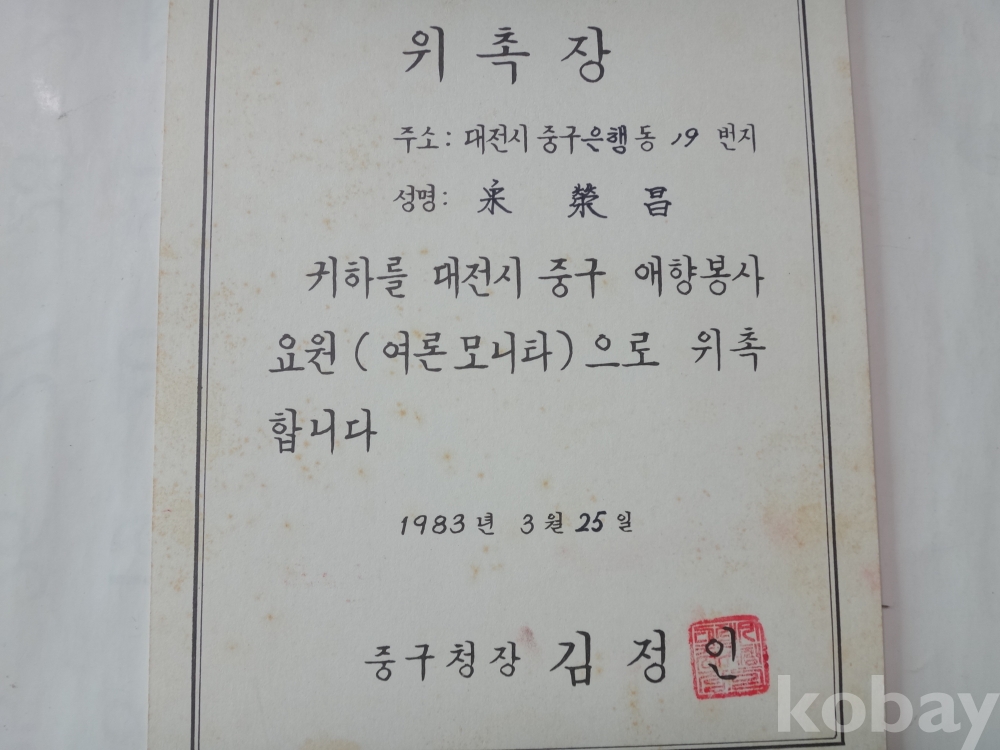 위촉장
주소: 대전시 중구은행동 19 번지
성명: 宋 榮 昌
귀하를 대전시 중구 애향봉사
요원(여론모니타)으로 위촉
합니다
1983년 3월 25일
중구청장 김정인
kobay